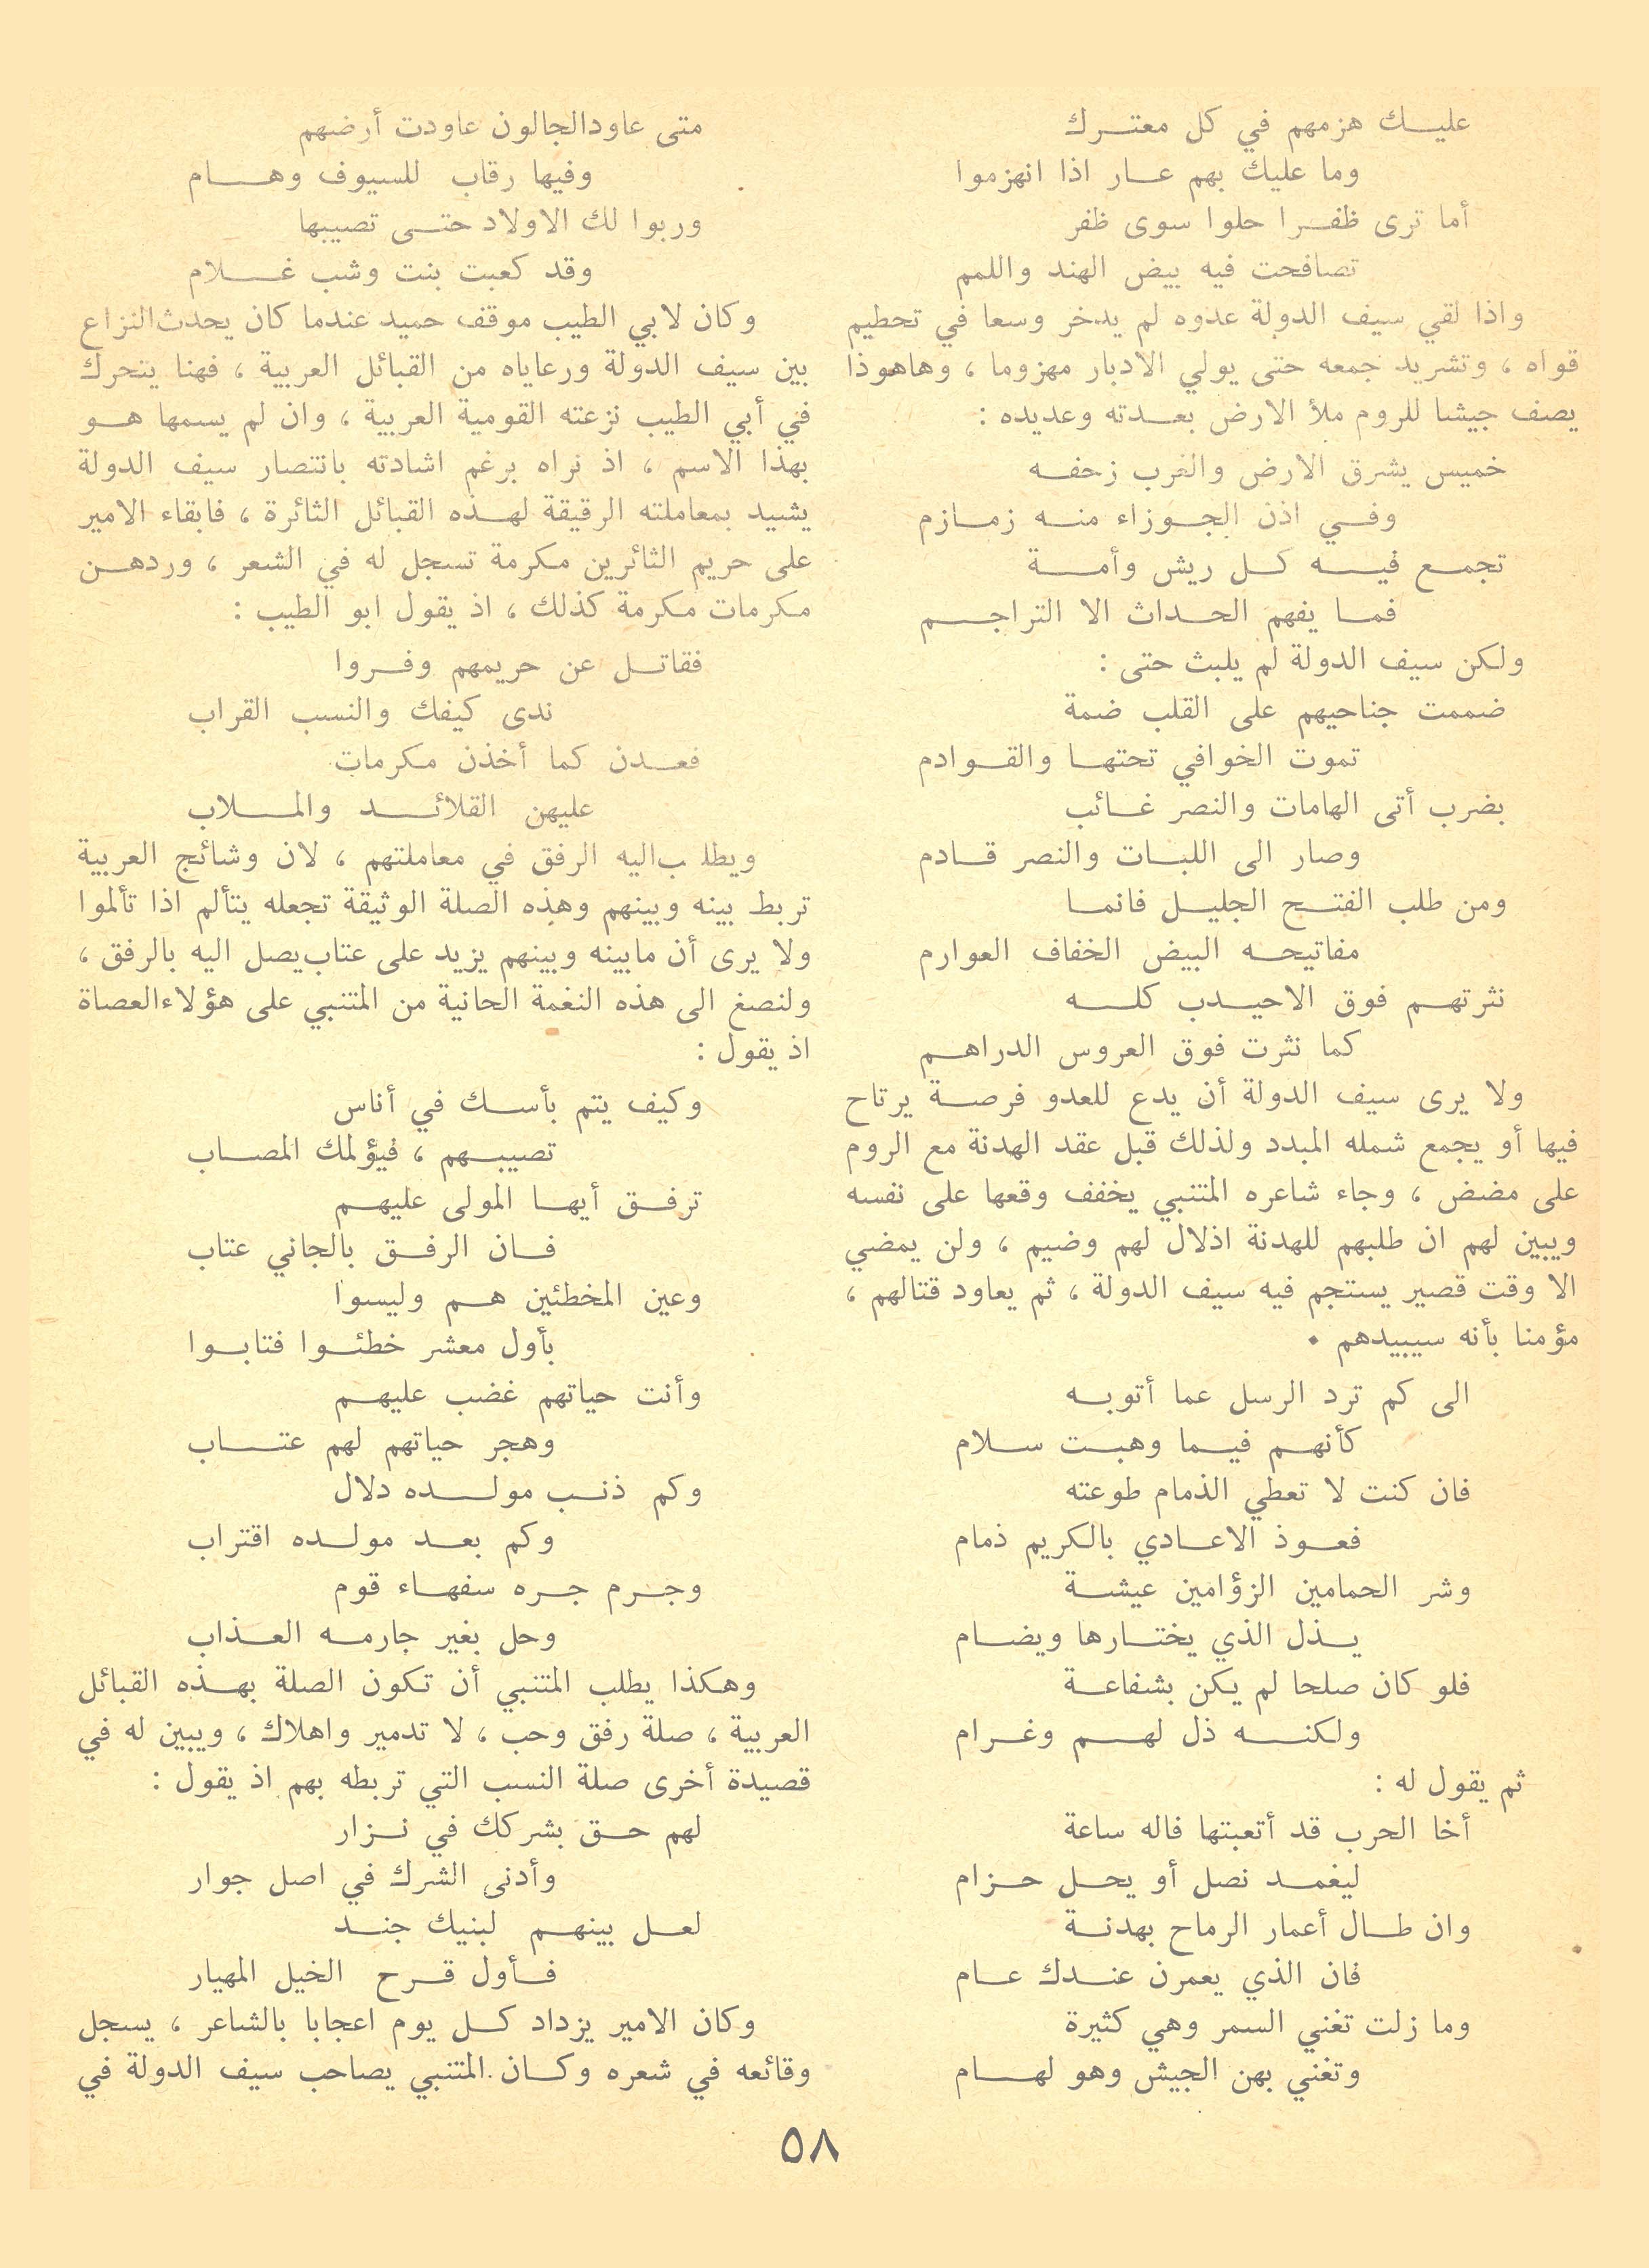 عليـــك هزمهم في كل معتـــرك
وما عليك بهم عـــار اذا انهزموا
أما ترى ظفـــرا حلوا سوى ظفر
تصافحت فيه بيض الهند واللمم
واذا لقي سيف الدولة عدوه لم يدخر وسعا في تحطيم
قواه ، وتشريد جمعه حتى يولي الادبار مهزوما ، وهاهوذا
يصف جيشا للروم ملأ الارض بعـــدته وعديده :
خميس يشرق الارض والغرب زحفـــه
وفـــي اذن الجـــوزاء منـــه زمـــازم
تجمـــع فيـــه كـــل ريش وأمـــة
فمـــا يفهم الحـــداث الا التراجـــم
ولكن سيف الدولة لم يلبث حتى :
ضممت جناحيهم على القلب ضمة
تموت الخوافي تحتهـــا والقـــوادم
بضرب أتى الهامات والنصر غـــائب
وصار الى اللبـــات والنصر قـــادم
ومن طلب الفتـــح الجليـــل فانمـــا
مفاتيحـــه البيض الخفاف العوارم
نثرتهـــم فوق الاحيـــدب كلـــه
كما نثرت فوق العروس الدراهـــم
ولا يرى سيف الدولة أن يدع للعدو فرصـــة يرتاح
فيها أو يجمع شمله المبدد ولذلك قبل عقد الهدنة مع الروم
على مضض ، وجاء شاعره المتنبي يخفف وقعها على نفسه
ويبين لهم ان طلبهم للهدنة اذلال لهم وضيم ، ولن يمضي
الا وقت قصير يستجم فيه سيف الدولة ، ثم يعاود قتالهم ،
مؤمنا بأنه سيبيدهم •
الى كم ترد الرسل عما أتوبـــه
كأنهـــم فيـــما وهبـــت ســـلام
فان كنت لا تعطي الذمام طوعته
فعـــوذ الاعـــادي بالكريم ذمام
وشر الحمامين الزؤامين عيشـــة
يـــذل الذي يختـــارها ويضـــام
فلو كان صلحا لم يكن بشفاعـــة
ولكنـــه ذل لهـــم وغـــرام
ثم يقول له :
أخا الحرب قد أتعبتها فاله ساعة
ليغمـــد نصل أو يحـــل حـــزام
وان طـــال أعمار الرماح بهدنـــة
فان الذي يعمرن عنـــدك عـــام
وما زلت تغني السمر وهي كثيرة
وتغني بهن الجيش وهو لهـــام
متى عاودالجالون عاودت أرضهم
وفيها رقاب للسيوف وهـــام
وربوا لك الاولاد حتـــى تصيبها
وقد كعبت بنت وشب غـــلام
وكان لابي الطيب موقف حميد عندما كان يحدث النزاع
بين سيف الدولة ورعاياه من القبائل العربية ، فهنا يتحرك
في أبي الطيب نزعته القومية العربية ، وان لم يسمها هـــو
بهذا الاسم ، اذ نراه برغم اشادته بانتصار سيف الدولة
يشيد بمعاملته الرقيقة لهـــذه القبائل الثائرة ، فابقاء الامير
على حريم الثائرين مكرمة تسجل له في الشعر ، وردهـــن
مكرمات مكرمة كذلك ، اذ يقول ابو الطيب :
فقاتـــل عن حريمهم وفـــروا
ندى كيفك والنسب القراب
فعـــدن كما أخذن مكرمات
عليهن القلائـــد والمـــلاب
ويطلب اليه الرفق في معاملتهم ، لان وشائج العربية
تربط بينه وبينهم وهذه الصلة الوثيقة تجعله يتألم اذا تألموا
ولا يرى أن مابينه وبينهم يزيد على عتاب يصل اليه بالرفق ،
ولنصغ الى هذه النغمة الحانية من المتنبي على هؤلاء العصاة
اذ يقول :
وكيف يتم بأســـك في أناس
تصيبـــهم ، فيؤلمك المصـــاب
ترفـــق أيهـــا المولى عليهـــم
فـــان الرفـــق بالجاني عتاب
وعين المخطئين هـــم وليسوا
بأول معشر خطئـــوا فتابـــوا
وأنت حياتهم غضب عليهـــم
وهجر حياتهم لهم عتـــاب
وكم ذنـــب مولـــده دلال
وكم بعـــد مولـــده اقتراب
وجـــرم جـــره سفهـــاء قوم
وحل بغير جارمـــه العـــذاب
وهكذا يطلب المتنبي أن تكون الصلة بهـــذه القبائل
العربية ، صلة رفق وحب ، لا تدمير واهلاك ، ويبين له في
قصيدة أخرى صلة النسب التي تربطه بهم اذ يقول :
لهم حـــق بشركك في نـــزار
وأدنى الشرك في اصل جوار
لعـــل بينهـــم لبنيك جنـــد
فـــأول قـــرح الخيل المهيار
وكان الامير يزداد كـــل يوم اعجابا بالشاعر ، يسجل
وقائعه في شعره وكـــان المتنبي يصاحب سيف الدولة في
٥٨